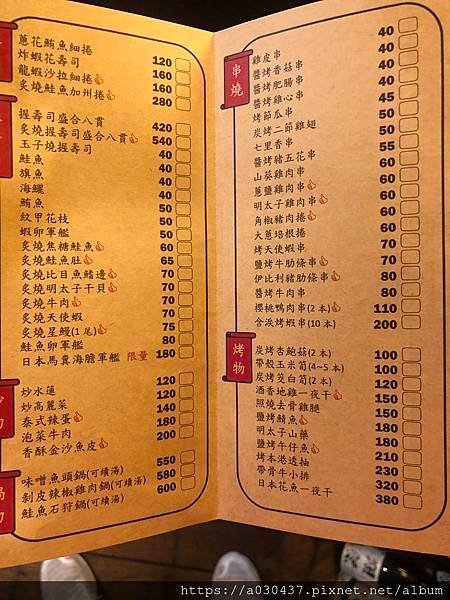 蔥花鮪魚細捲 120
炸蝦花壽司 160
龍蝦沙拉細捲 160
炙燒鮭魚加州捲 280
握壽司盛合八貫 420
炙燒握壽司盛合八貫 540
玉子燒握壽司 40
鮭魚 40
旗魚 40
海鱺 50
鮪魚 50
紋甲花枝 50
蝦卵軍艦 60
炙燒焦糖鮭魚 60
炙燒鮭魚肚 65
炙燒比目魚鰭邊 70
炙燒明太子干貝 70
炙燒牛肉 80
炙燒天使蝦 70
炙燒星鰻(1尾) 75
鮭魚卵軍艦 80
日本馬糞海膽軍艦 限量 180
炒水蓮 120
炒高麗菜 120
泰式辣蛋 140
泡菜牛肉 180
香酥金沙魚皮 200
味噌魚頭鍋(可續湯) 550
剝皮辣椒雞肉鍋(可續湯) 580
鮭魚石狩鍋(可續湯) 600
串燒
雞皮串 40
醬烤香菇串 40
醬烤肥腸串 40
醬烤雞心串 40
烤節瓜串 45
炭烤二節雞翅 50
七里香串 50
醬烤豬五花串 55
山葵雞肉串 60
蔥鹽雞肉串 60
明太子雞肉串 60
角椒豬肉捲 60
大蔥培根捲 60
烤天使蝦串 70
鹽烤牛肋條串 70
伊比利豬肋條串 80
醬烤牛肉串 80
櫻桃鴨肉串(2本) 110
含淚烤蝦串(10本) 200
烤物
炭烤杏鮑菇(2本) 100
帶殼玉米筍(4~5本) 100
炭烤筊白筍(2本) 120
酒香地雞一夜干 150
照燒去骨雞腿 150
鹽烤鯖魚 180
明太子山藥 180
鹽烤午仔魚 210
烤本港透抽 230
帶骨牛小排 320
日本花魚一夜干 380
https://a030437.pixnet.net/album